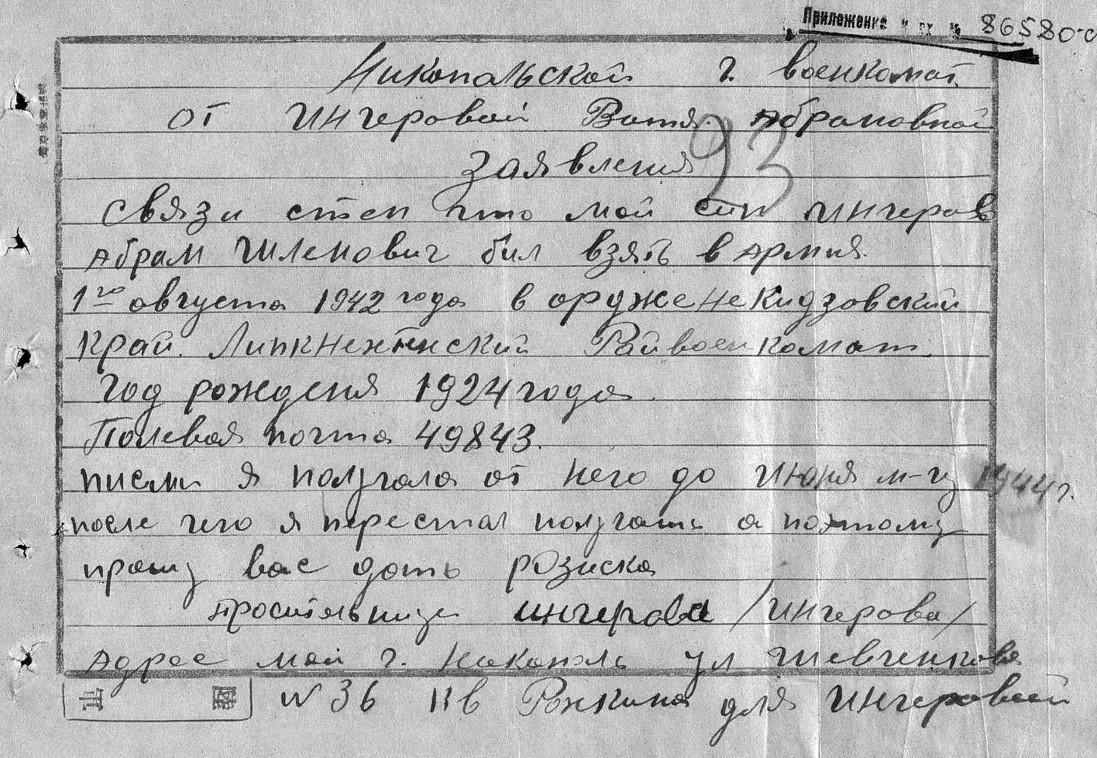 Приложение к вх. № 86580-с
Никопальской г. военкомат
от Ингеровой Абрамовной
93
Заявления
Связи стем что мой син Ингеров
Абрам Шлемович бил взять в Армия.
1го августа 1942 года в орджененекидзовский
край. Райвоенкомат.
Год рождения 1924 года.
Полевая почта 49843.
писми я получала от него до июня м-ц 1944 г.
после чего я перестал получать а поэтому
прошу вас дать розиска
просительница Ингерова /Ингерова/
Адрес мой г. Никополь ул Шевченкова
N 36 кв для Ингеровой